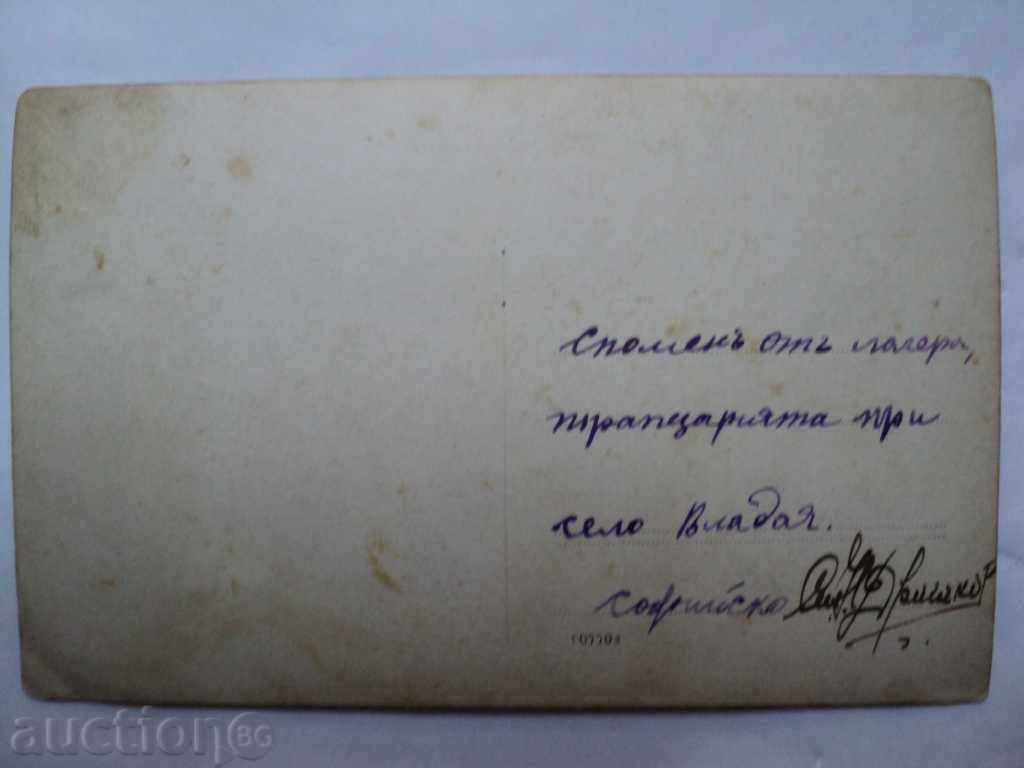 Споменъ отъ лагера,
трапезарията при
село Владая.
Софийско
auction BG